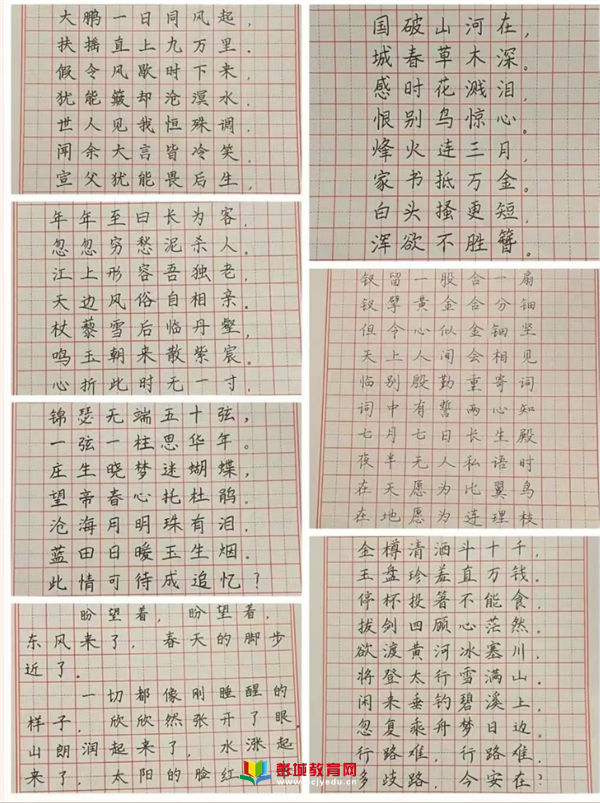 大鹏一日同风起，
扶摇直上九万里。
假令风歇时下来，
犹能簸却沧溟水。
世人见我恒殊调，
闻余大言皆冷笑。
宣父犹能畏后生，
年年至日长为客，
忽忽穷愁泥杀人。
江上形容吾独老，
天边风俗自相亲。
杖藜雪后临丹壑，
鸣玉朝来散紫宸。
心折此时无一寸，
锦瑟无端五十弦，
一弦一柱思华年。
庄生晓梦迷蝴蝶，
望帝春心托杜鹃。
沧海月明珠有泪，
蓝田日暖玉生烟。
此情可待成追忆？
盼望着，盼望着，
东风来了，春天的脚步
近了。
一切都像刚睡醒的
样子，欣欣然张开了眼
山朗润起来了，水涨起
来了，太阳的脸红
国破山河在，
城春草木深。
感时花溅泪，
恨别鸟惊心。
烽火连三月，
家书抵万金。
白头搔更短，
浑欲不胜簪。
钗留一股合一扇
钗擘黄金合分钿
但令心似金钿坚
天上人间会相见
临别殷勤重寄词
词中有誓两心知
七月七日长生殿
夜半无人私语时
在天愿为比翼鸟
在地愿为连理枝
金樽清酒斗十千，
玉盘珍羞直万钱。
停杯投箸不能食，
拔剑四顾心茫然。
欲渡黄河冰塞川，
将登太行雪满山。
闲来垂钓碧溪上，
忽复乘舟梦日边。
行路难，行路难，
多歧路，今安在？
彭城教育网
pcjyedu.cn